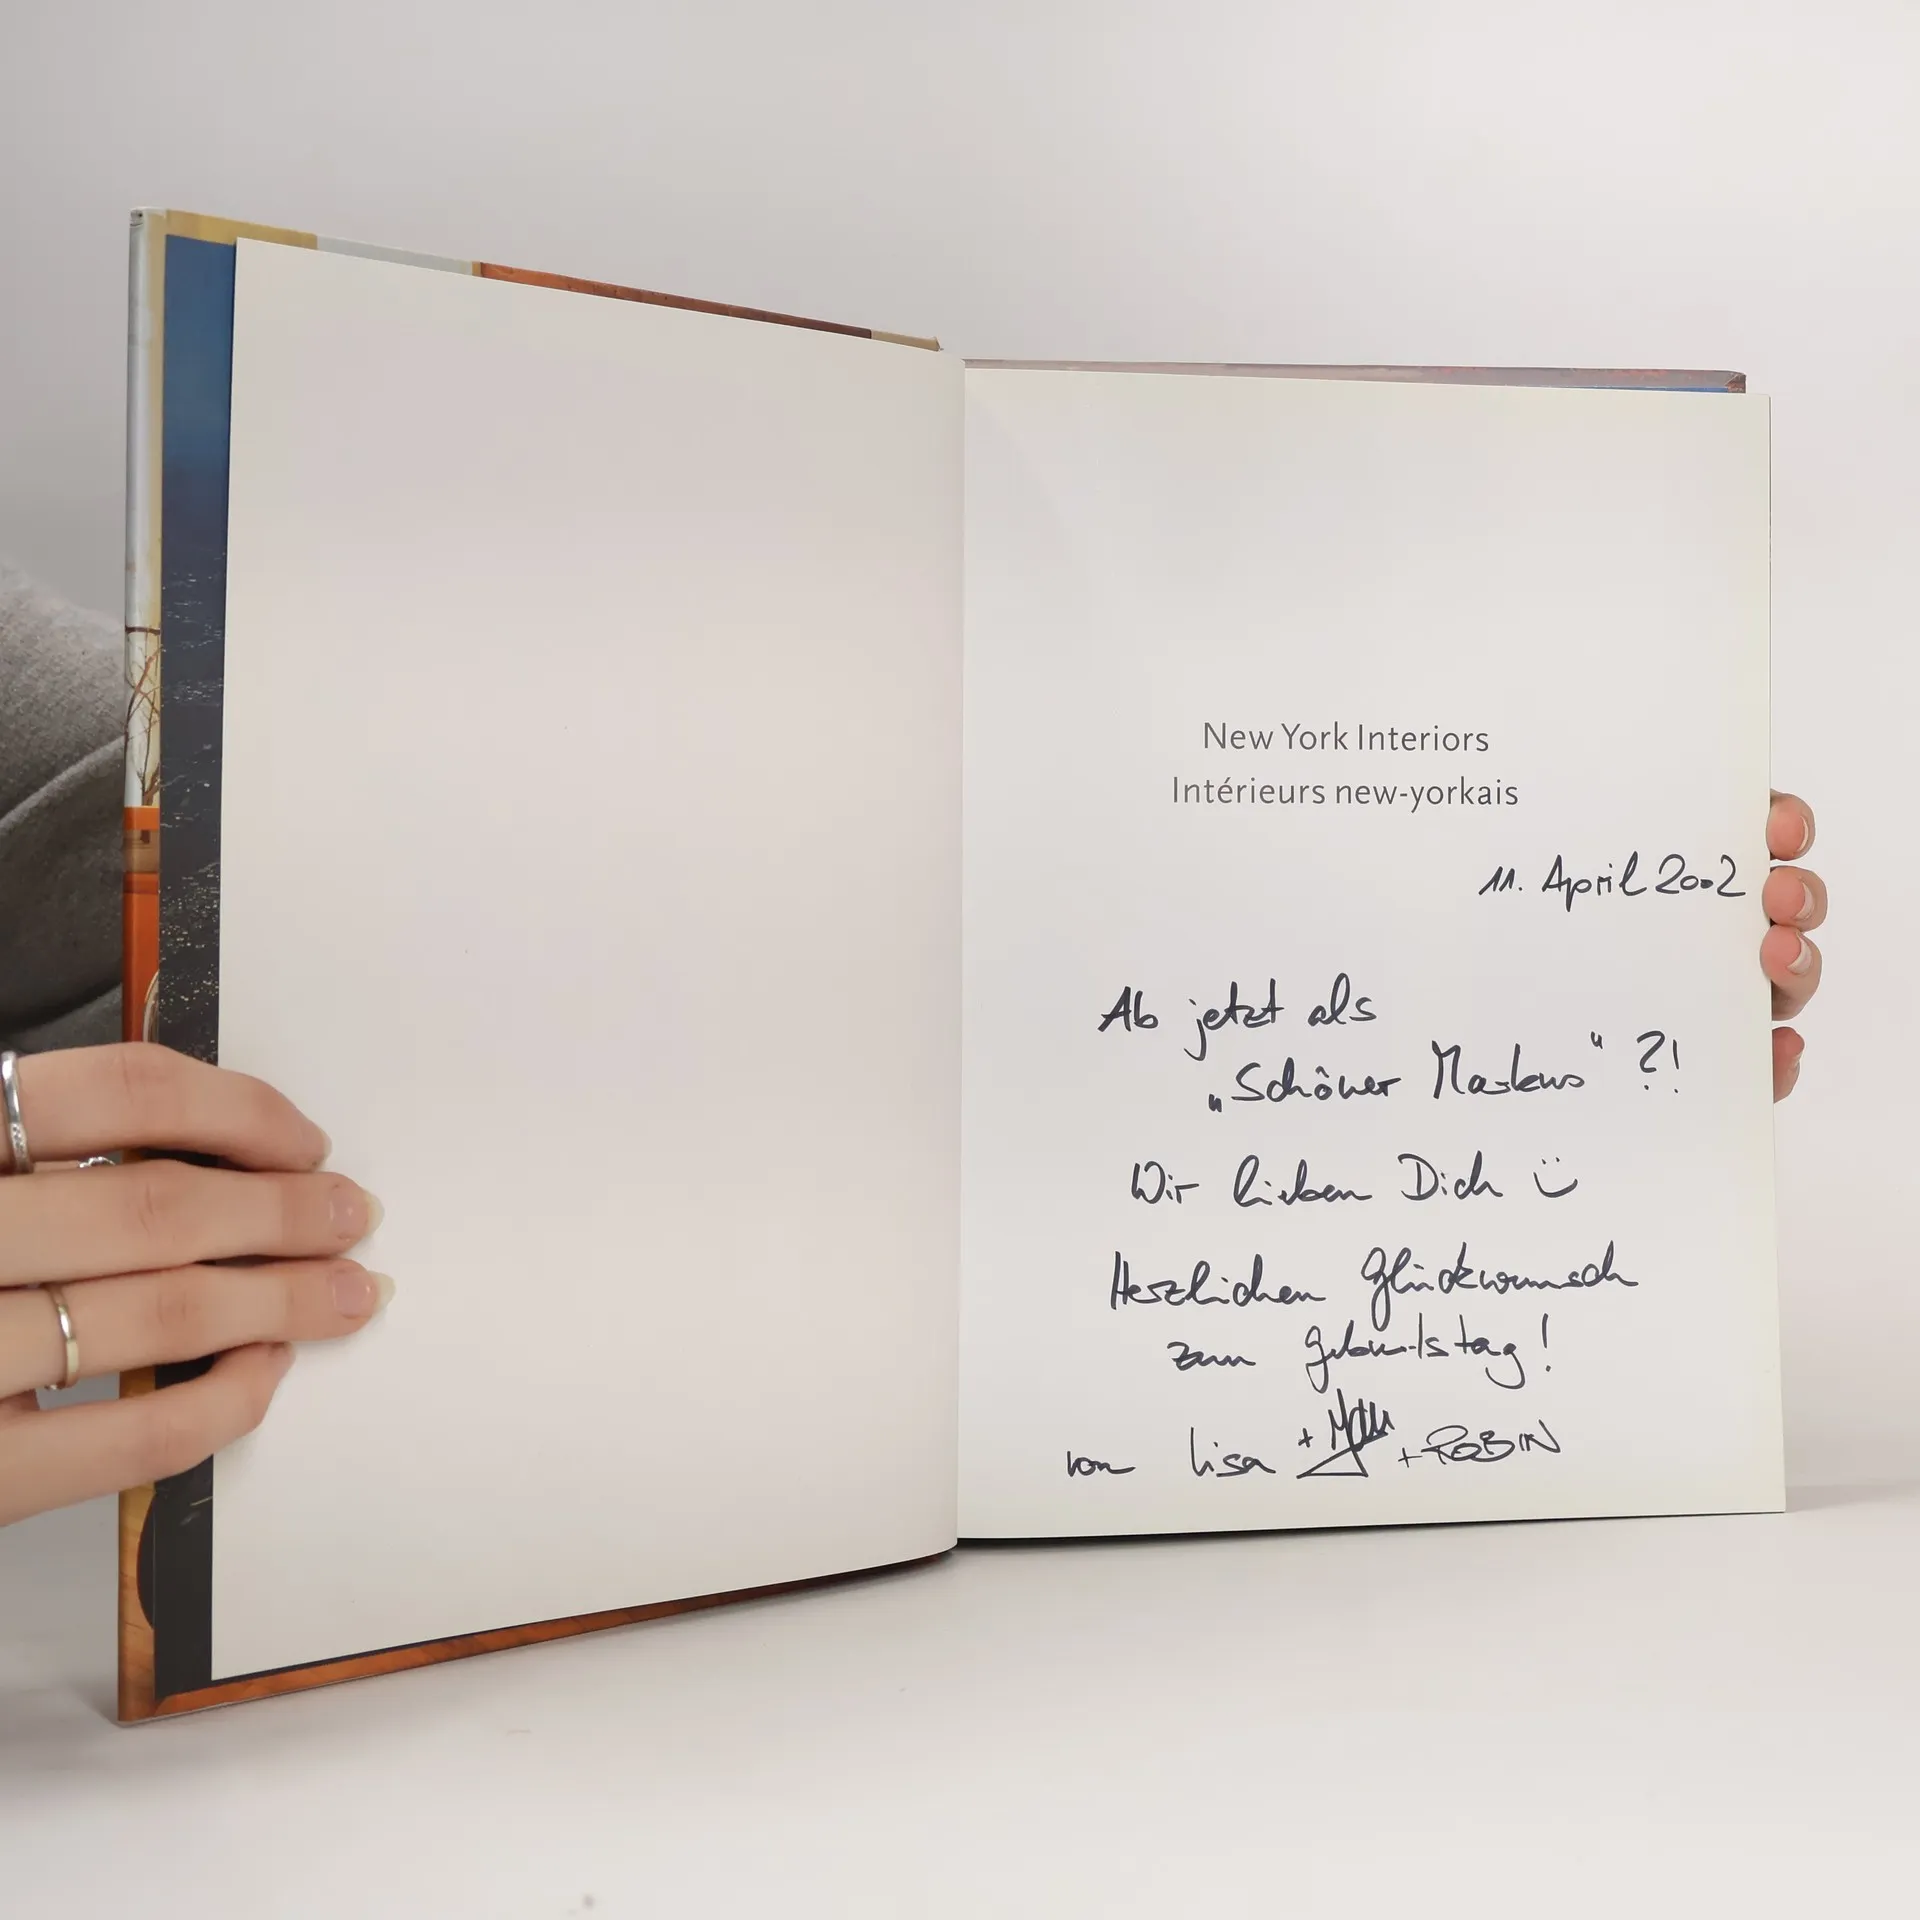 New York Interiors
Intérieurs new-yorkais
11. April 2002
Ab jetzt als
„Schöner Markus" ?!
Wir lieben Dich ü
Herzlichen Glückwunsch
zum Geburtstag!
von Lisa + + ROBIN